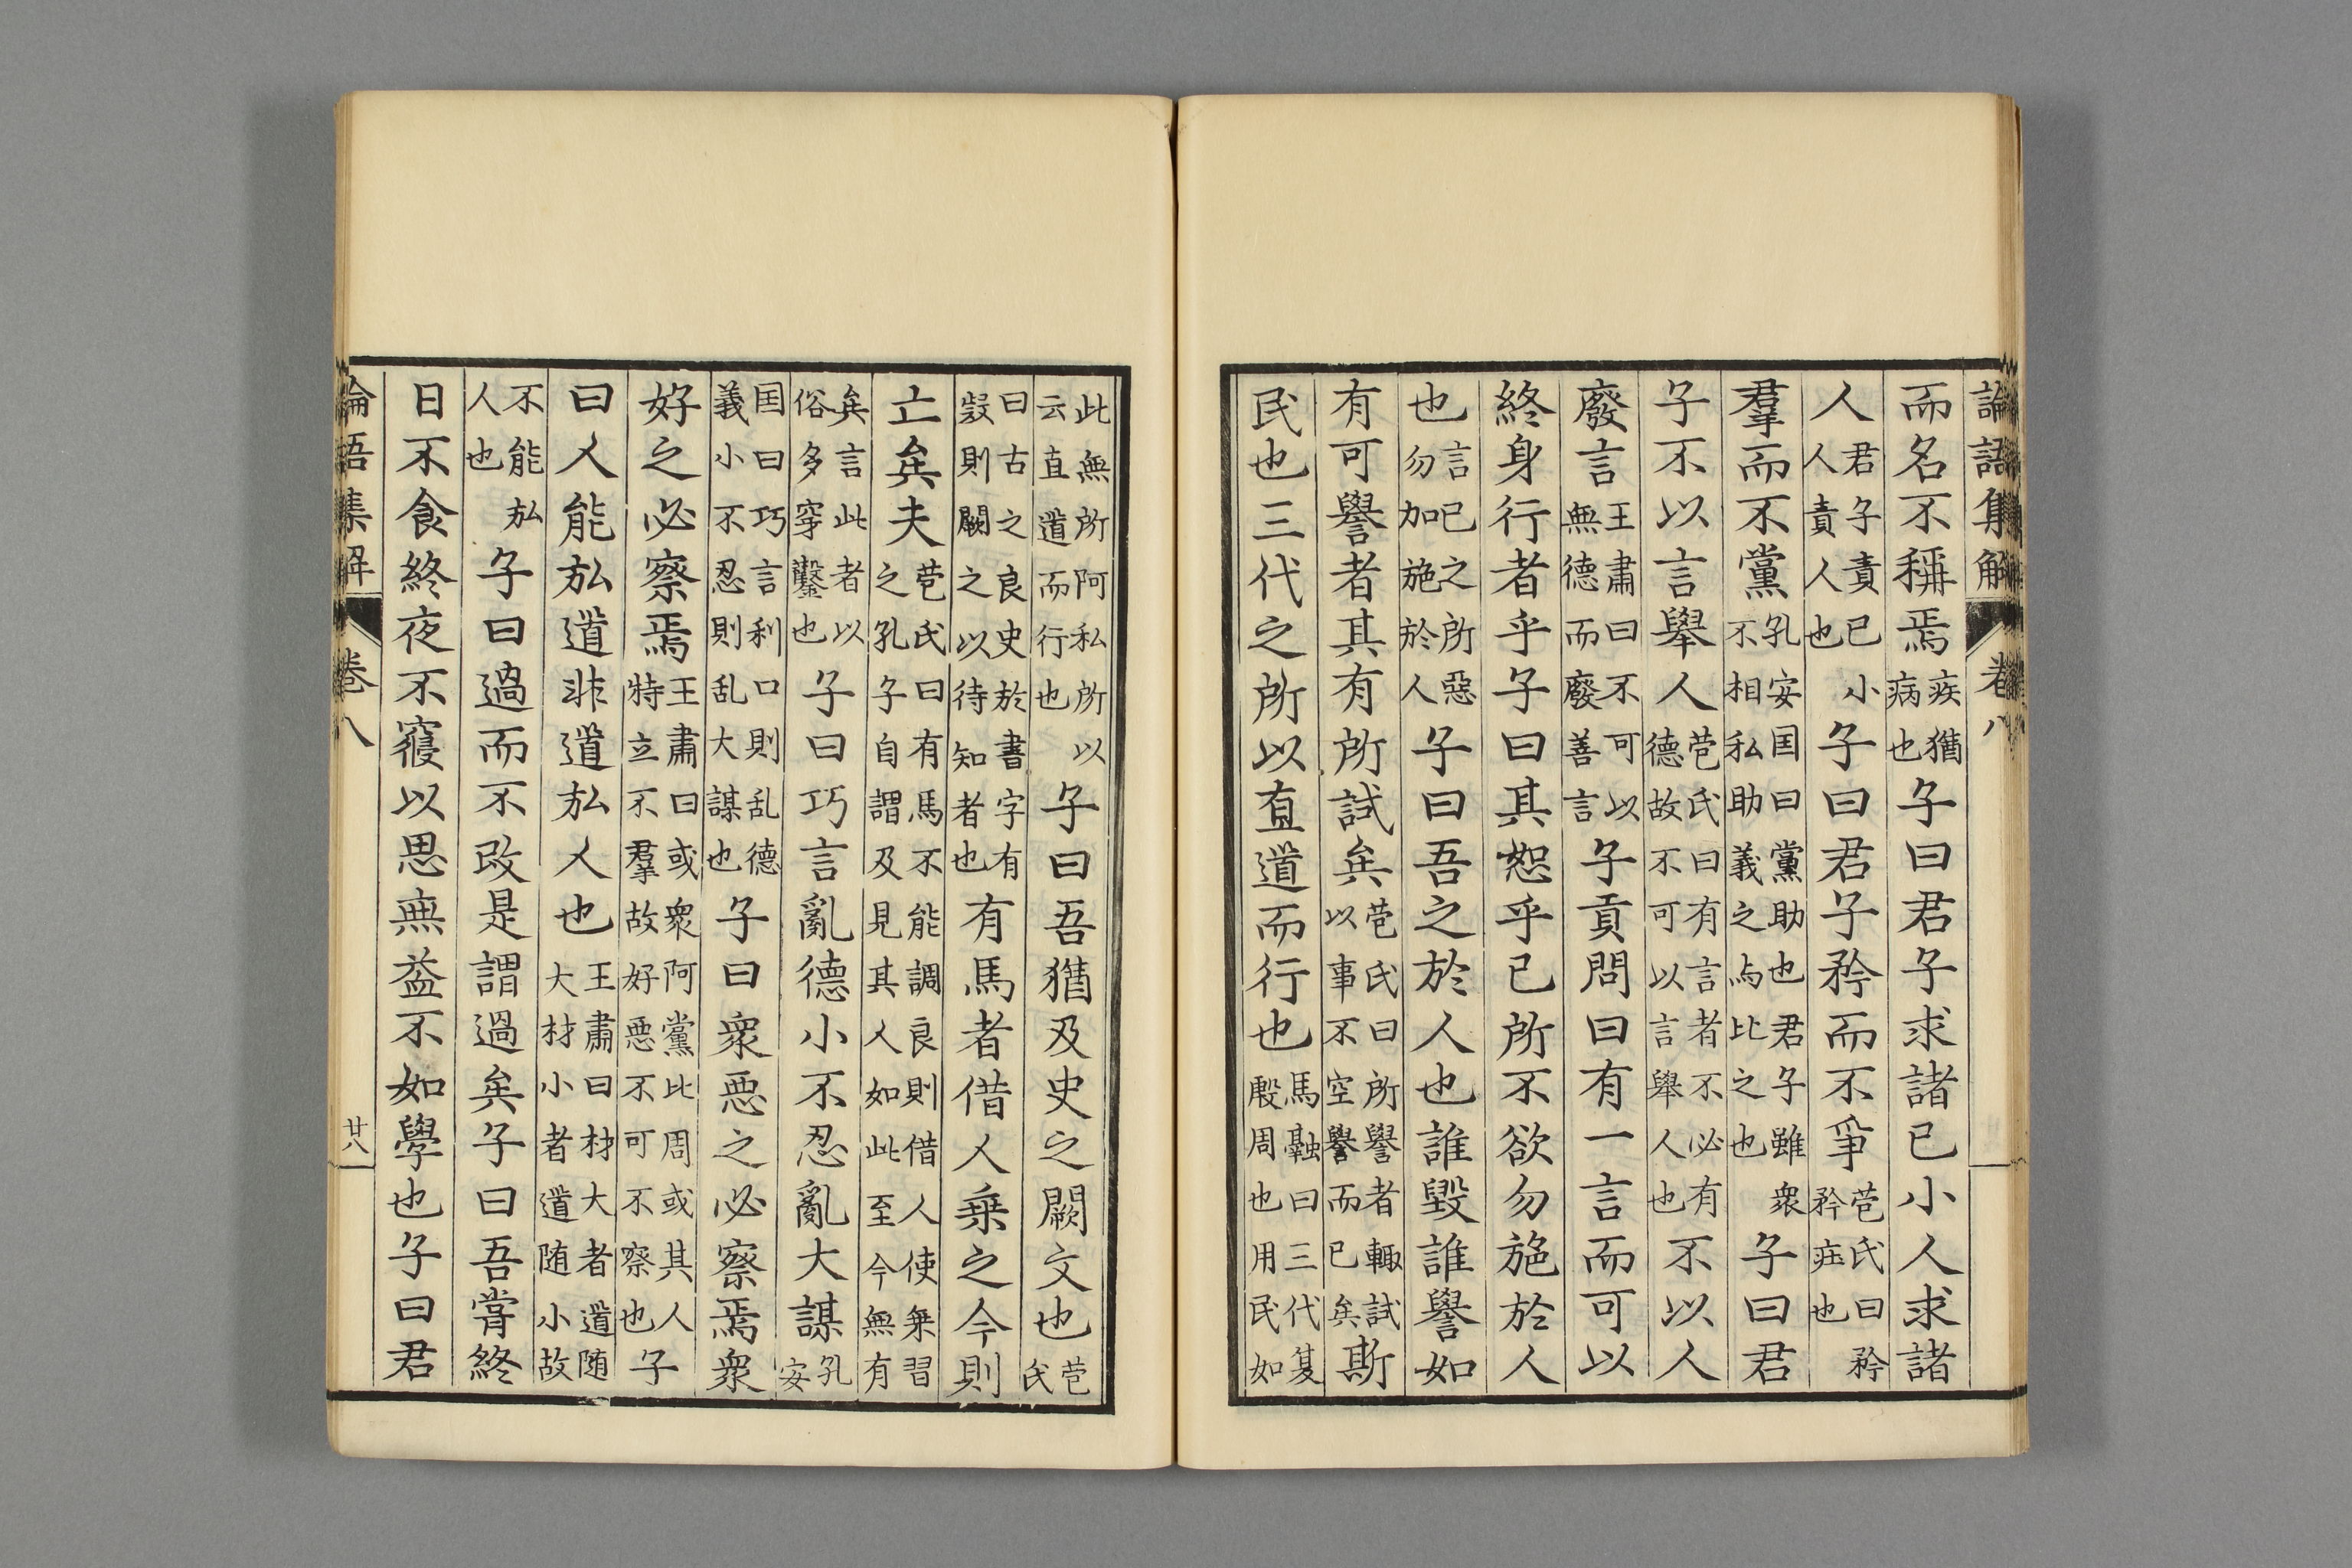 論語集解 卷八
而名不稱焉疾猶病也子曰君子求諸己小人求諸
人君子責己小人責人也子曰君子矜而不爭苞氏曰矜矜莊也
羣而不黨孔安国曰黨助也君子雖衆不相私助義之与比之也子曰君
子不以言舉人苞氏曰有言者不必有德故不可以言舉人也不以人
廢言王肅曰不可以無德而廢善言子貢問曰有一言而可以
終身行者乎子曰其恕乎己所不欲勿施於人
也言己之所惡勿加施於人子曰吾之於人也誰毀誰譽如
有可譽者其有所試矣苞氏曰所譽者輙試以事不空譽而已矣斯
民也三代之所以直道而行也馬融曰三代夏殷周也用民如
此無所阿私所以云直道而行也子曰吾猶及史之闕文也苞氏
曰古之良史於書字有疑則闕之以待知者也有馬者借人乗之今則
亡矣夫苞氏曰有馬不能調良則借人使乗習之孔子自謂及見其人如此至今無有
矣言此者以俗多穿鑿也子曰巧言亂德小不忍亂大謀孔安
国曰巧言利口則乱德義小不忍則乱大謀也子曰衆惡之必察焉衆
好之必察焉王肅曰或衆阿黨比周或其人特立不羣故好惡不可不察也子
曰人能弘道非道弘人也王肅曰材大者道随大材小者道随小故
不能弘人也子曰過而不改是謂過矣子曰吾嘗終
日不食終夜不寢以思無益不如學也子曰君
論語集解 卷八 廿八